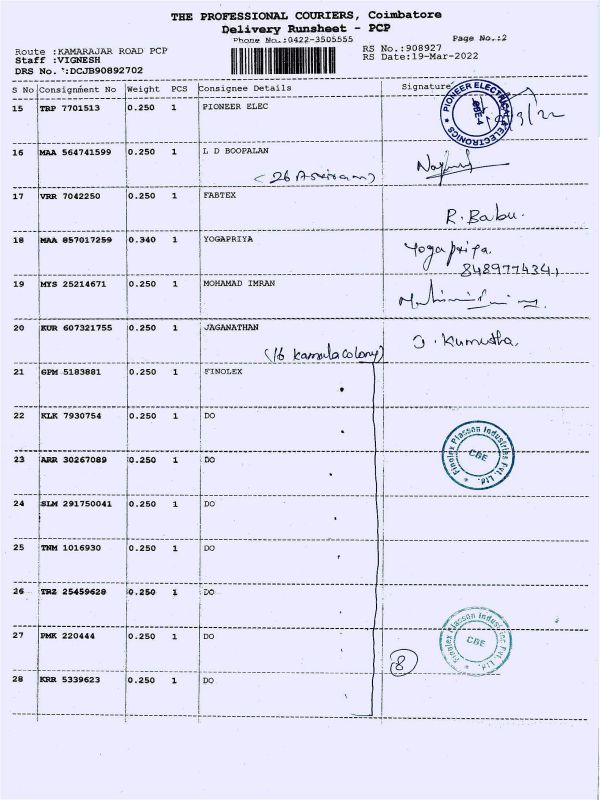 THE PROFESSIONAL COURIERS, Coimbatore
Delivery Runsheet - PCP
Phone No.:0422-3505555
Page No.:2
Route :KAMARAJAR ROAD PCP
RS No.:908927
Staff :VIGNESH
RS Date:19-Mar-2022
DRS No. :DCJB90892702
S No Consignment No Weight PCS Consignee Details Signature
15 TRP 7701513 0.250 1 PIONEER ELEC
PIONEER ELECTRICAL & ELECTRONICS
CBE-4
3/22
16 MAA 564741599 0.250 1 L D BOOPALAN
(26
17 VRR 7042250 0.250 1 FABTEX
R. Babu.
18 MAA 857017259 0.340 1 YOGAPRIYA
Yogapriya.
8489774341
19 MYS 25214671 0.250 1 MOHAMAD IMRAN
20 KUR 607321755 0.250 1 JAGANATHAN
(16 Kamala colony)
J. Kumutha.
21 GPM 5183881 0.250 1 FINOLEX
22 KLK 7930754 0.250 1 DO
23 ARR 30267089 0.250 1 DO
Finolex Plasson Industries Pvt. Ltd.
CBE
24 SLM 291750041 0.250 1 DO
25 TNM 1016930 0.250 1 DO
26 TRZ 25459628 0.250 1 DO
27 PMK 220444 0.250 1 DO
Finolex Plasson Industries Pvt. Ltd.
CBE
8
28 KRR 5339623 0.250 1 DO